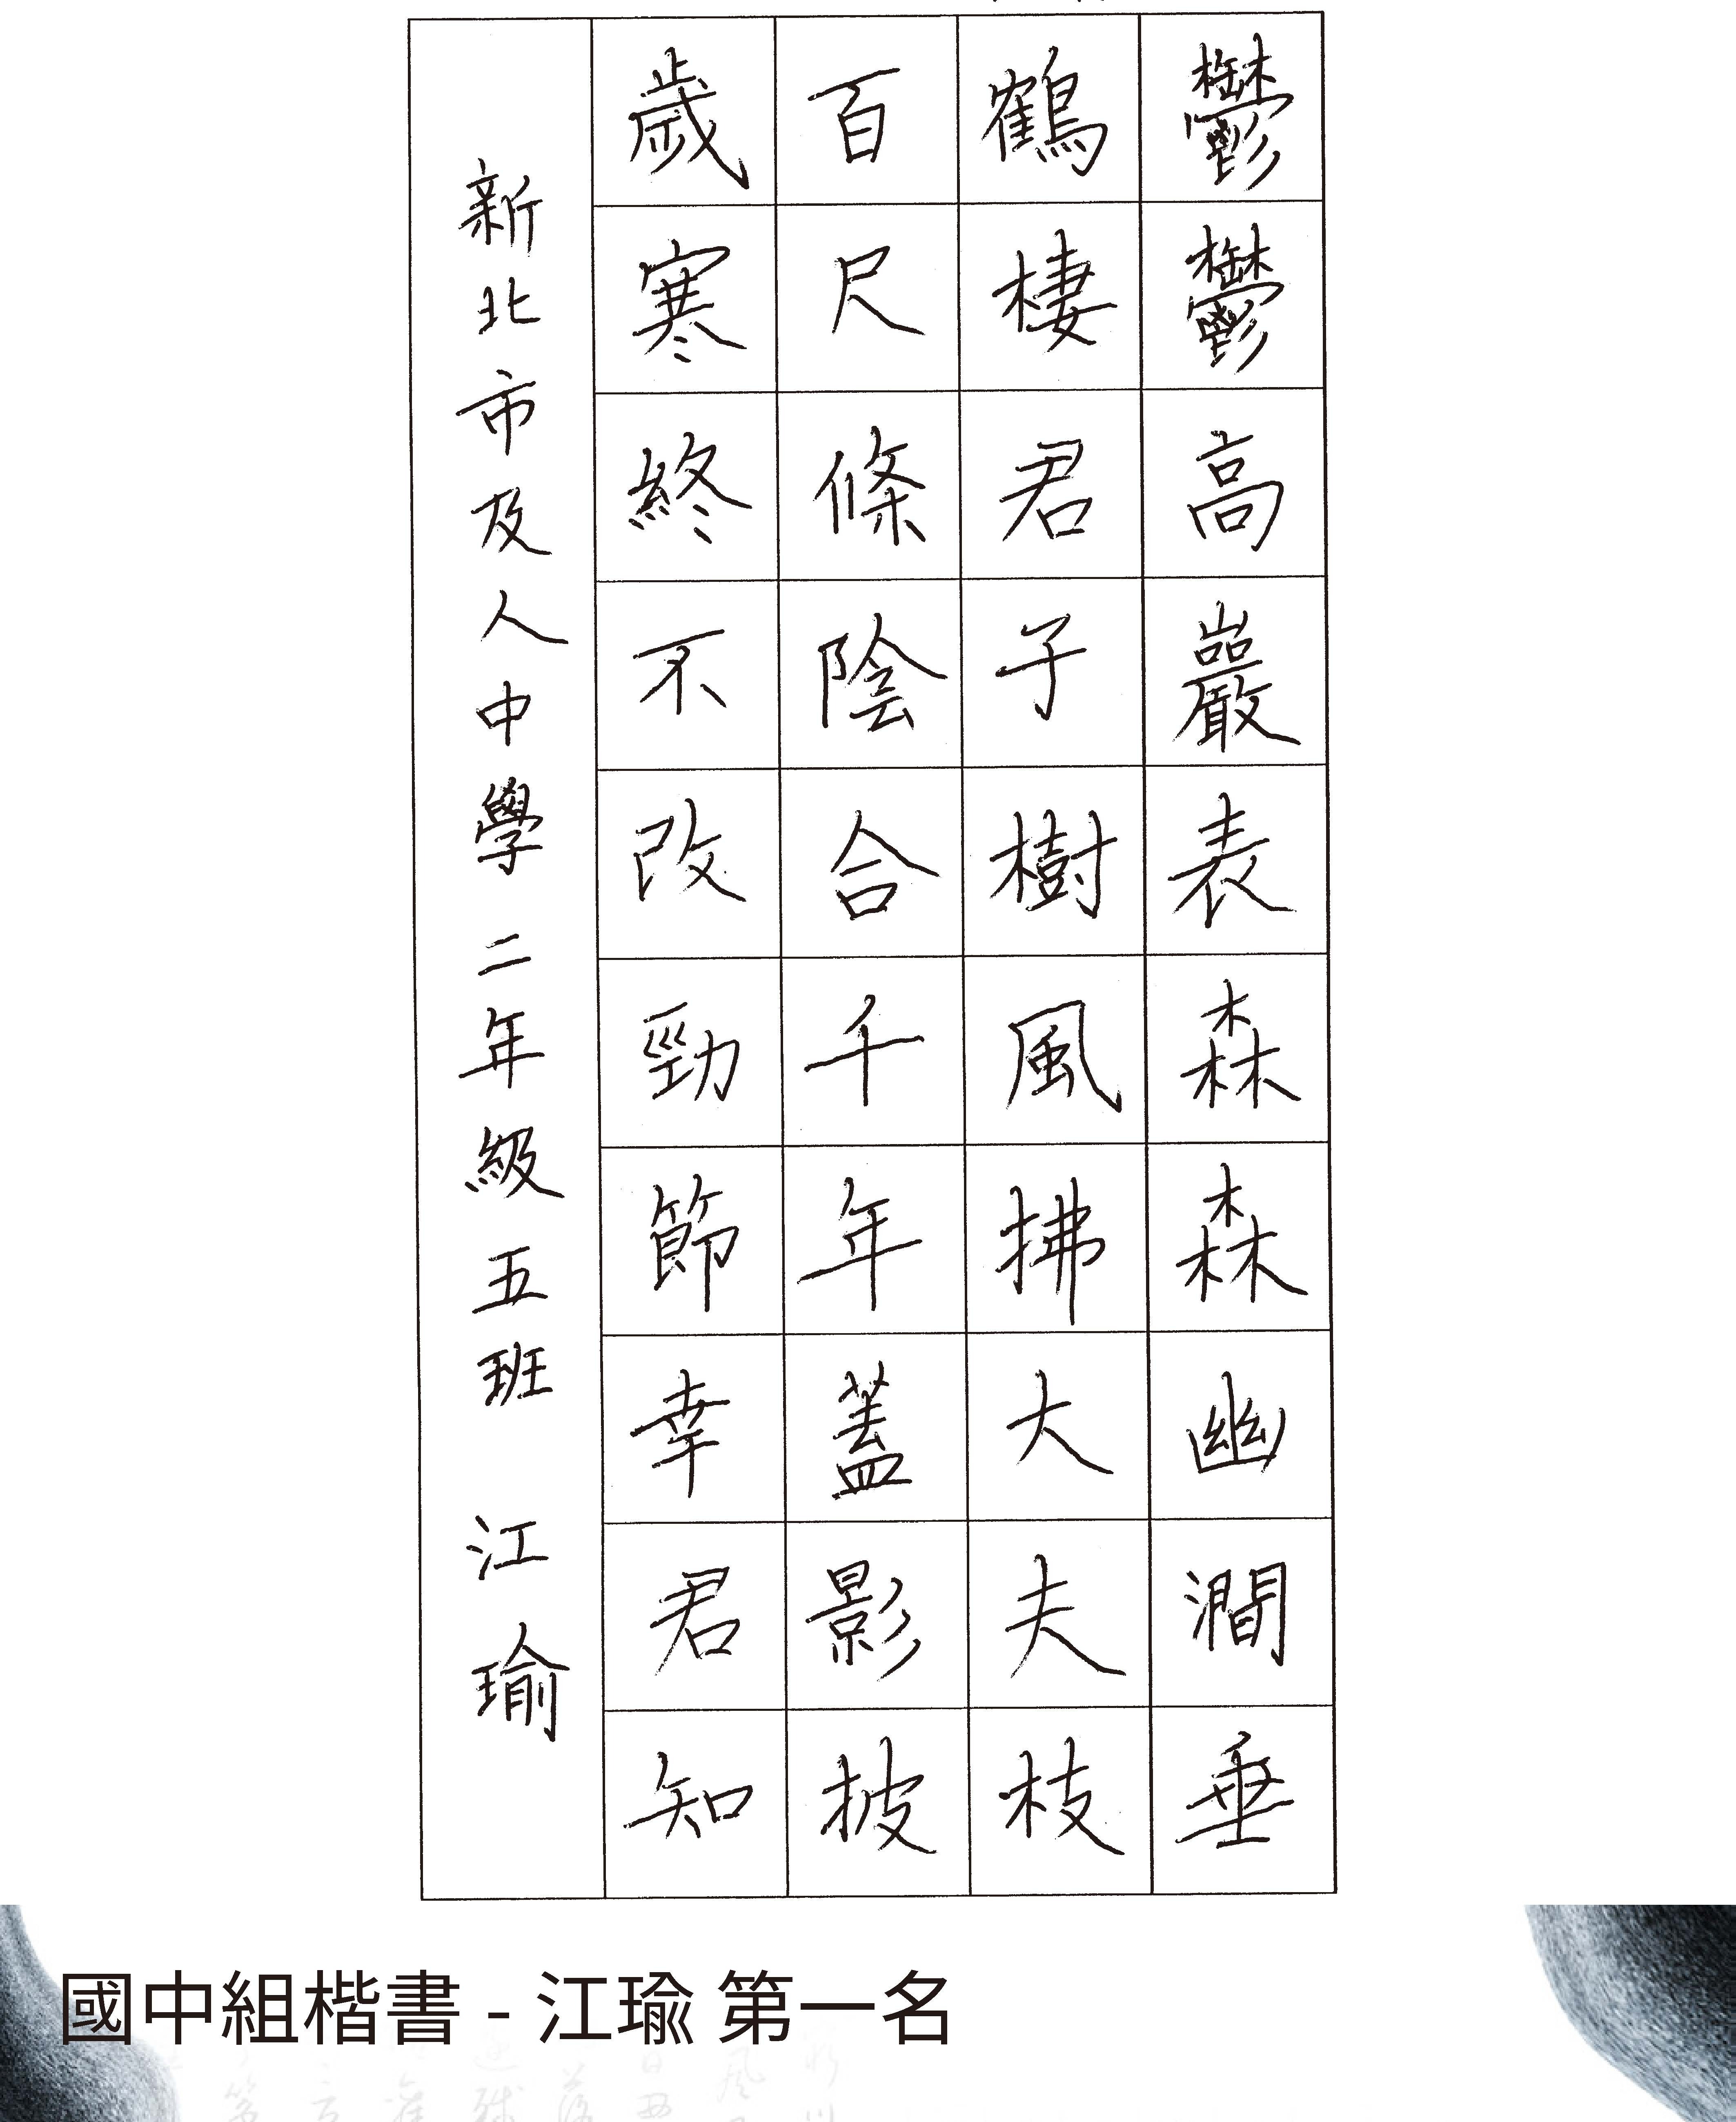 鬱鬱高巖表森森幽澗垂
鶴棲君子樹風拂大夫枝
百尺條陰合千年蓋影披
歲寒終不改勁節幸君知
新北市及人中學二年級五班 江瑜
國中組楷書 - 江瑜 第一名